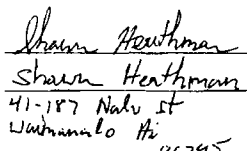 Shawn Heathman
Shawn Heathman
41-187 Nalu St
Waimanalo Hi
96795